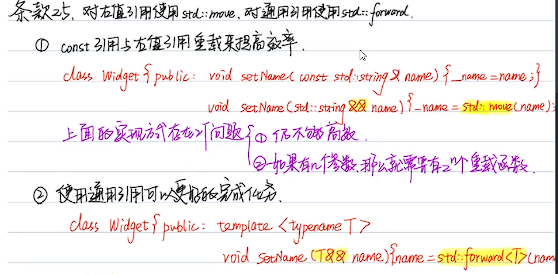 条款25, 对右值引用使用std::move, 对通用引用使用std::forward.
① const引用与右值引用重载来提高效率.
class Widget{ public: void setName( const std::string& name) {_name=name;}
void setName(std::string&& name) {_name = std::move(name);
上面的实现方式存在2个问题 { ① 仍不够高效.
② 如果有n个参数,那么就需要有2^n个重载函数.
② 使用通用引用可以更好的完成任务.
class Widget{ public: template <typename T>
void setName (T&& name){name = std::forward<T>(nam